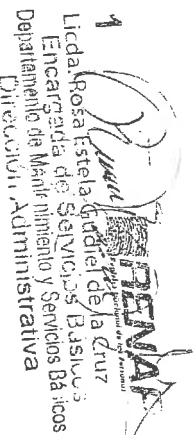 1
RENAP
Licda. Rosa Estela Gudiel de la Cruz
Encargada de Servicios Básicos
Departamento de Mantenimiento y Servicios Básicos
Dirección Administrativa